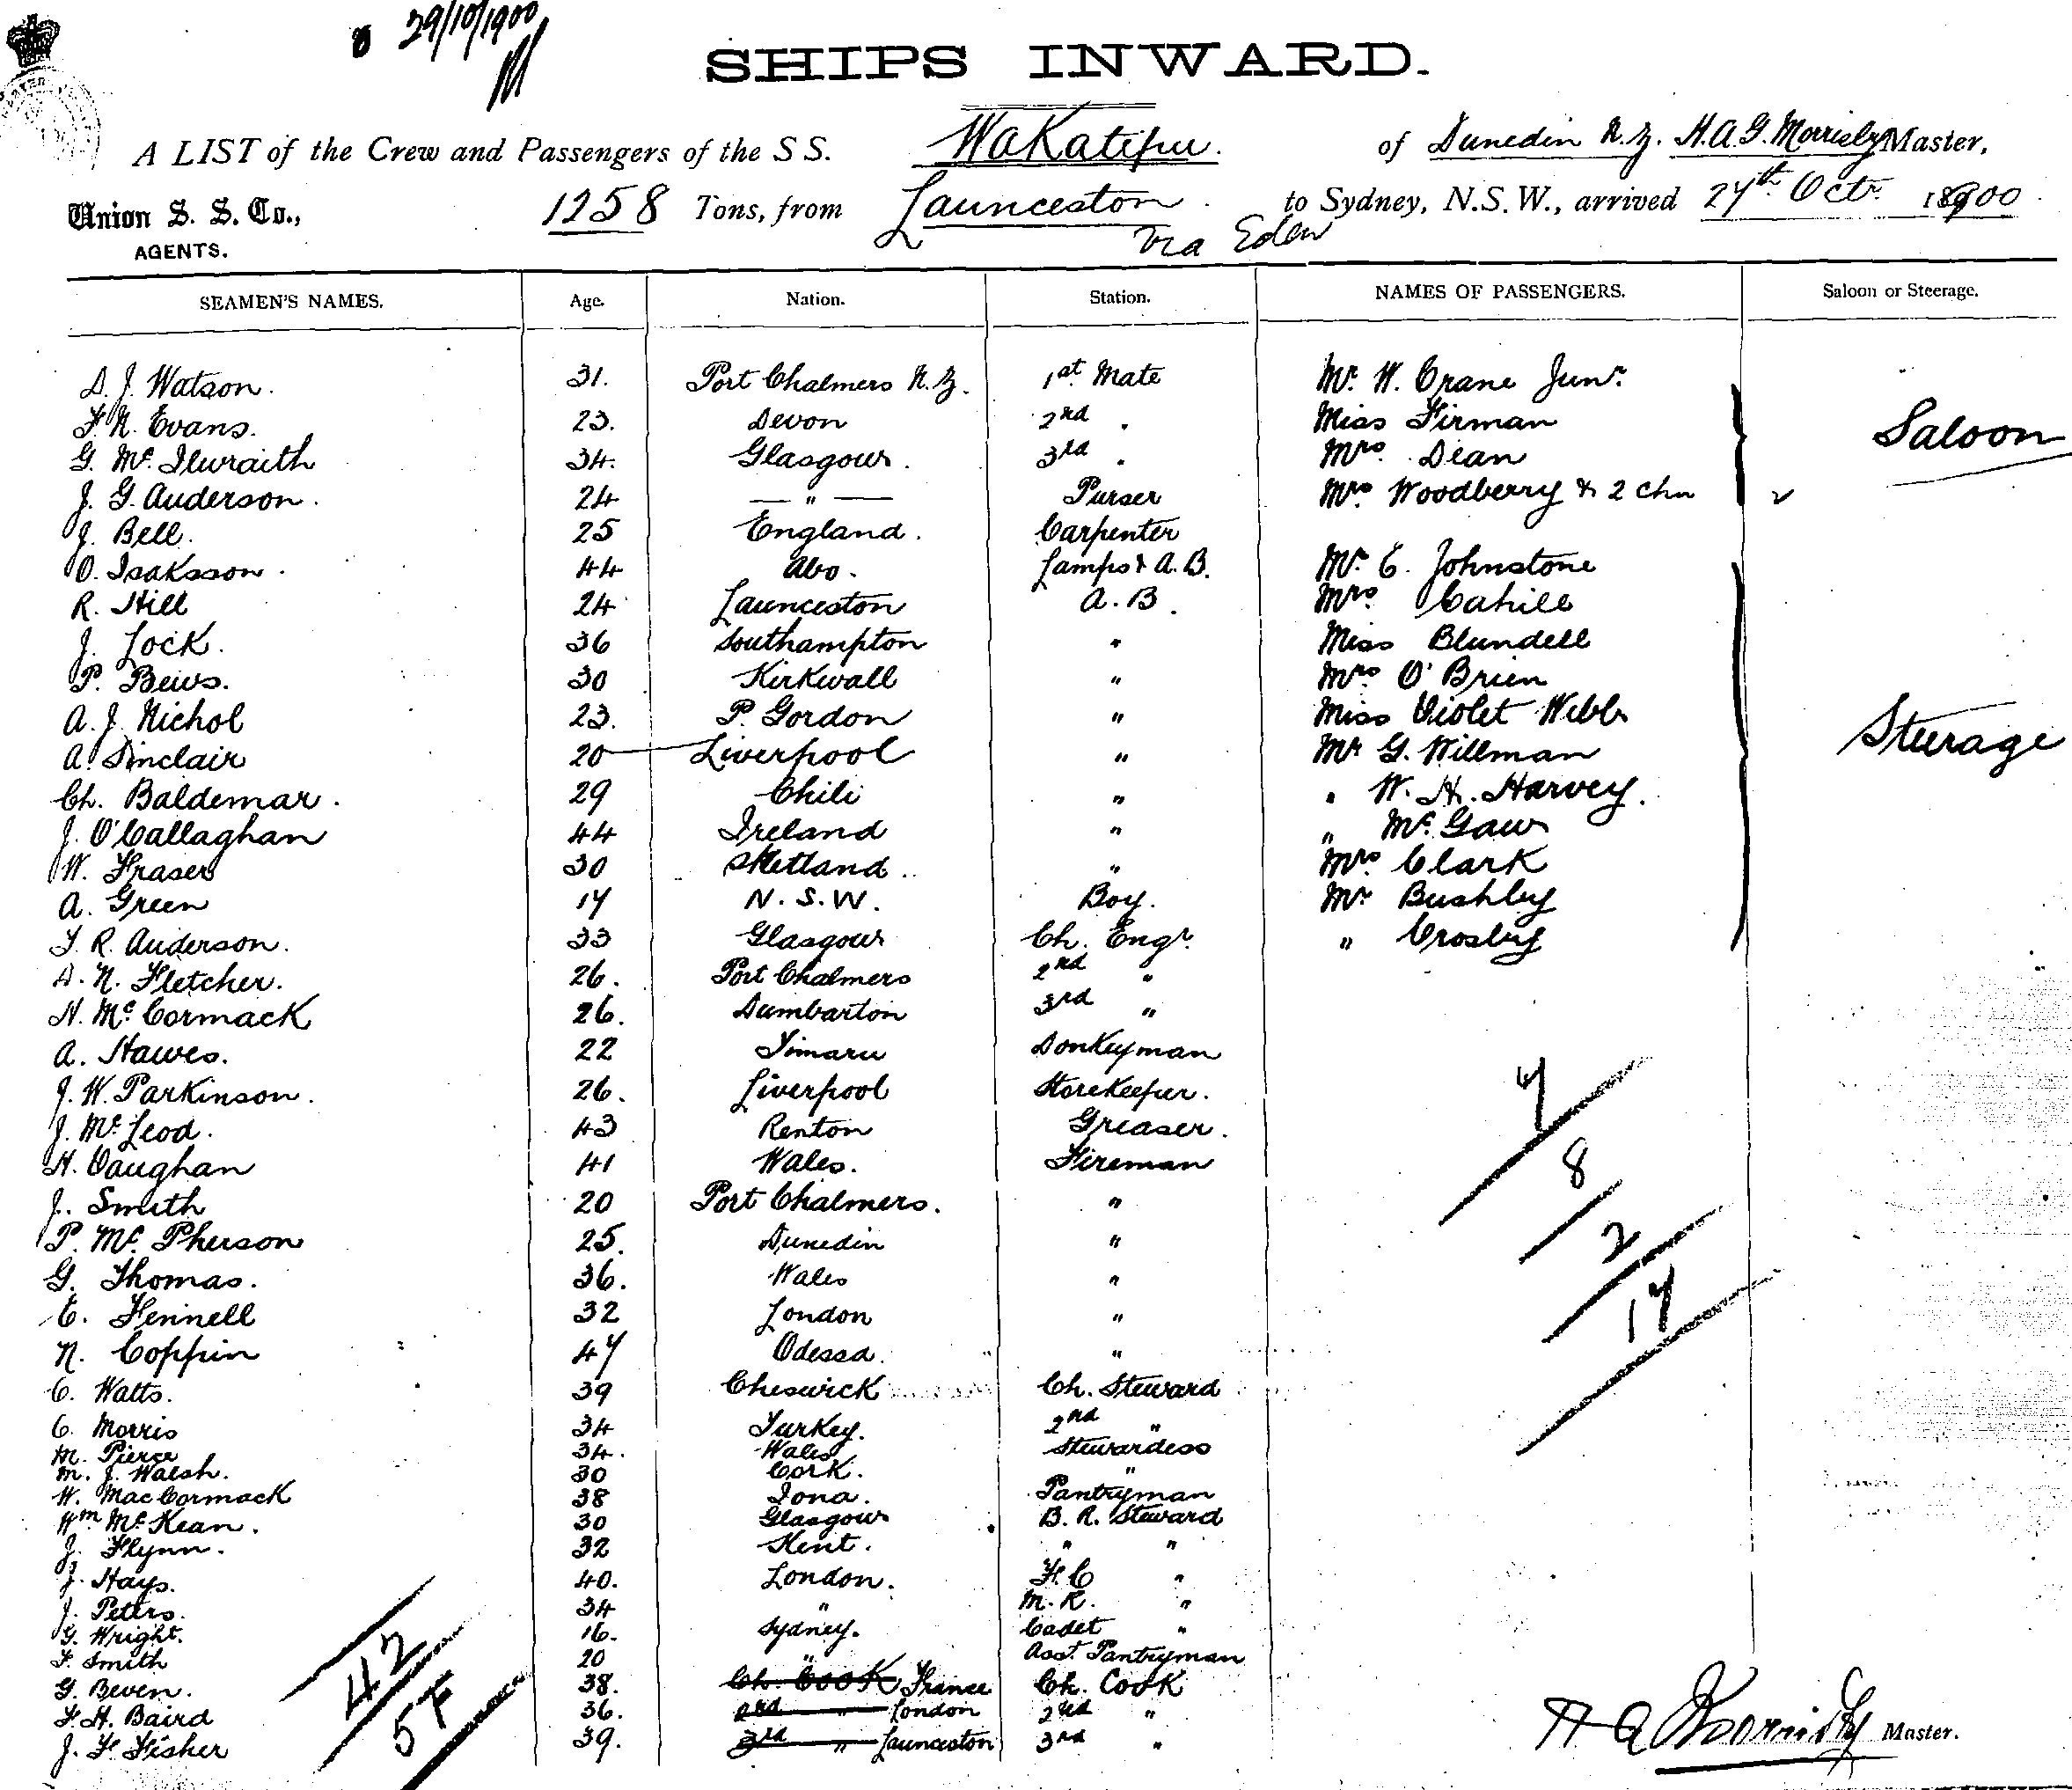 29/10/1900
SHIPS INWARD.
A LIST of the Crew and Passengers of the S S. Wakatipu. of Dunedin N.Z. H.A.G. Master,
Union S. S. Co., 1258 Tons, from Launceston to Sydney, N.S.W., arrived 27th Octr. 1900
AGENTS. Via Eden
SEAMEN'S NAMES. Age. Nation. Station. NAMES OF PASSENGERS. Saloon or Steerage.
D. J. Watson. 31. Port Chalmers N.Z. 1st Mate Mr. W. Crane Junr.
F. N. Evans. 23. Devon 2nd " Miss Firman
G. Mc. Ilwraith 34. Glasgow. 3rd " Mrs. Dean Saloon
J. G. Anderson. 24 — " — Purser Mrs Woodberry & 2 Chn
J. Bell. 25 England. Carpenter
O. Isaksson. 44 Abo. Lamps & A.B. Mr. E. Johnstone
R. Hill 24 Launceston A.B. Mrs. Cahill
J. Lock. 36 Southampton " Miss Blundell
P. Bews. 30 Kirkwall " Mrs O'Brien
A. J. Nichol 23. P. Gordon " Miss Violet Webb
A. Sinclair 20 Liverpool " Mr G. Willman Steerage
Ch. Baldemar. 29 Chili " " W. H. Harvey.
J. O'Callaghan 44 Ireland " " Mc. Gaw
W. Fraser 30 Shetland. " Mrs. Clark
A. Green 17 N.S.W. Boy. Mr. Bushby
T. R. Anderson. 33 Glasgow Ch. Engr. " Crosby
D. N. Fletcher. 26. Port Chalmers 2nd "
N. Mc. Cormack 26. Dumbarton 3rd "
A. Hawes. 22 Timaru Donkeyman
J. W. Parkinson. 26. Liverpool Storekeeper. 7
J. Mc. Leod. 43 Renton Greaser.
H. Vaughan 41 Wales. Fireman 8
J. Smith 20 Port Chalmers. "
P. Mc. Pherson 25. Dunedin " 2
G. Thomas. 36. Wales "
E. Fennell 32 London " 17
N. Coppin 47 Odessa. "
C. Watts. 39 Cheswick Ch. Steward
C. Morris 34 Turkey. 2nd "
M. Pierce 34. Wales Stewardess
M. J. Walsh. 30 Cork. "
W. MacCormack 38 Iona. Pantryman
Wm. Mc. Kean. 30 Glasgow B. R. Steward
J. Flynn. 32 Kent. " "
J. Hays. 40. London. F.C "
J. Peters. 34 " M.R. "
G. Wright. 16. Sydney. Cadet "
F. Smith 20 " Asst. Pantryman
G. Beven. 38. Ch. Cook France Ch. Cook
F. H. Baird 36. 2nd " London 2nd "
J. F. Fisher 39. 3rd " Launceston 3rd "
42
57
H A Master.